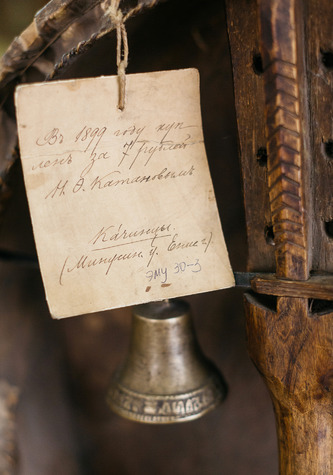 Въ 1899 году куп-
ленъ за 7 рублей
Н. Ѳ. Катановымъ
Ка́чинцы.
(Минусин. у. Енис. г.)
ЭМУ 30-3